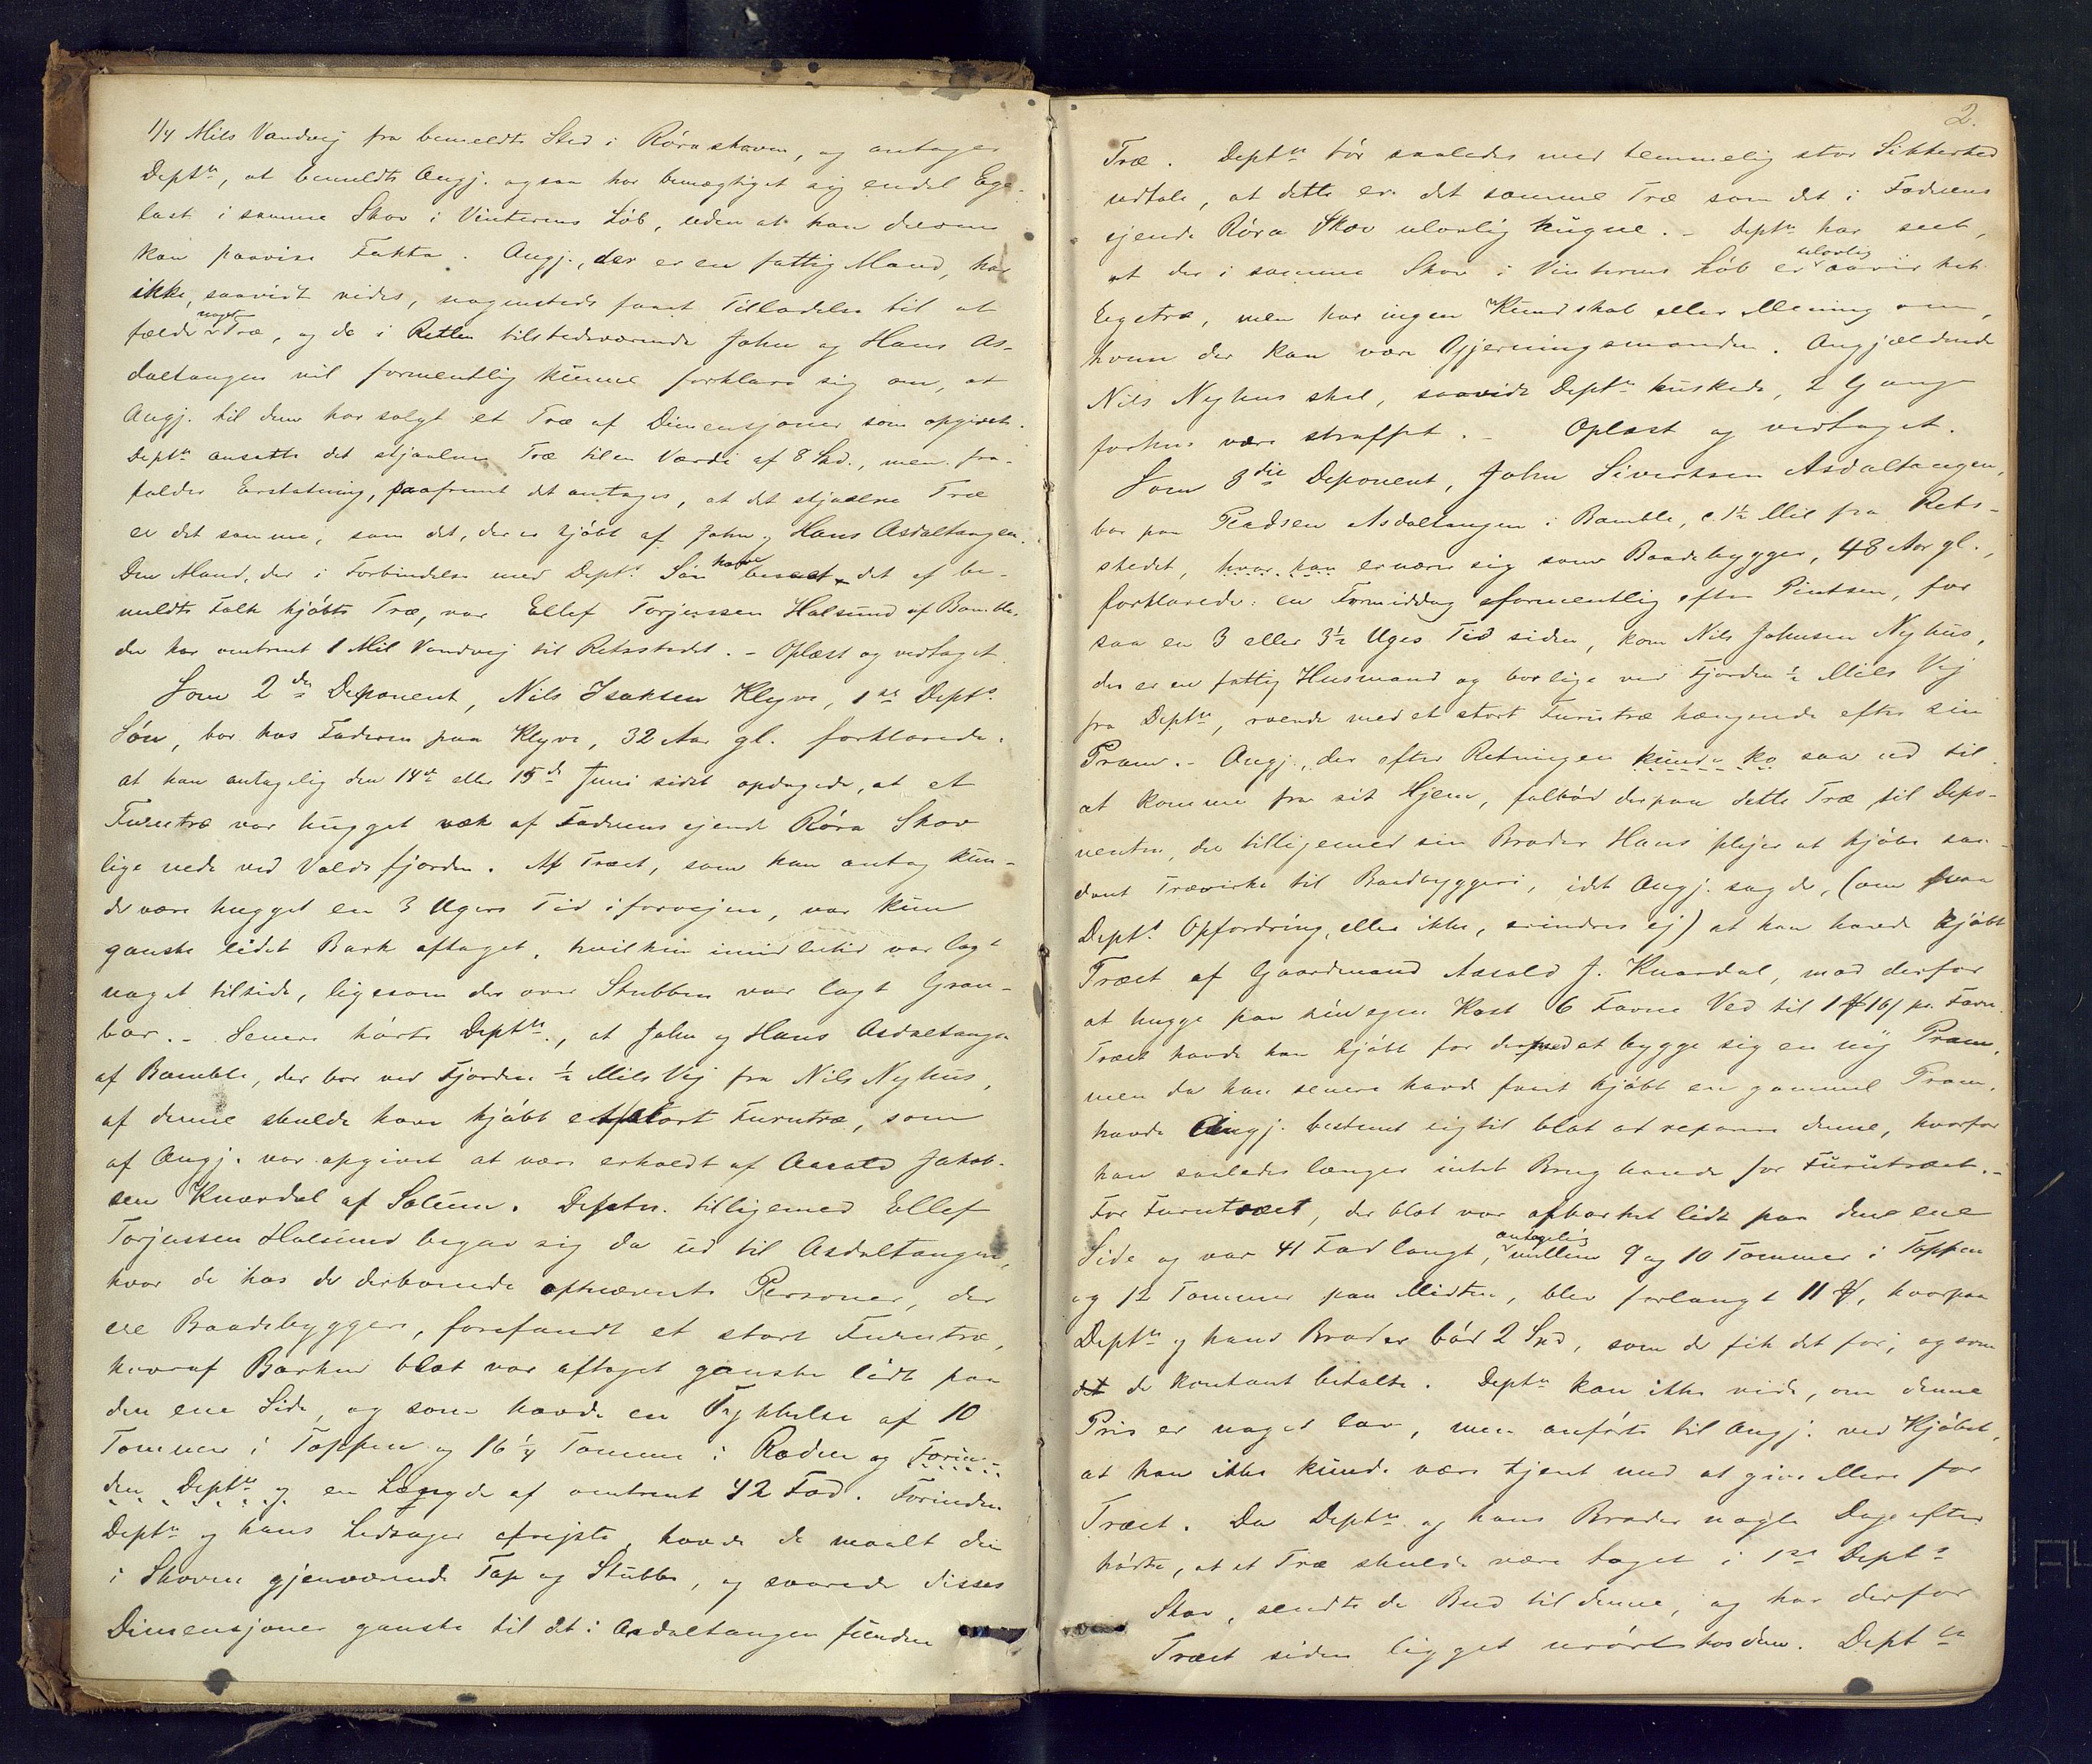 1/4 Mils Vandvej fra bemeldte Sted i Røraskoven, og antager
Deptn, at bemeldte Angj. ogsaa har bemægtiget sig endel Ege-
last i samme Skov i Vinterens Løb, uden at han derom
kan paavise Fakta. Angj., der er en fattig Mand, har
ikke, saavidt vides, nogensteds faaet Tilladelse til at
fælde noget Træ, og de i Retten tilstedeværende John og Hans As-
daltangen vil formentlig kunne forklare sig om, at
Angj. til dem har solgt et Træ af Dimensjoner som opgivet.
Deptn ansatte det stjaalne Træ til en Værdi af 8 Spd., men fra-
falder Erstatning, saafremt det antages, at det stjaalne Træ
er det samme, som det, der er kjøbt af John og Hans Asdaltangen.
Den Mand, der i Forbindelse med Depts Søn havde beseet det af be-
meldte Folk kjøbte Træ, var Ellef Torjussen Halsund af Bamble,
der har omtrent 1 Mil Vandvej til Retsstedet. - Oplæst og vedtaget.
Som 2den Deponent, Nils Isaksen Klyve, 1ste Depts
Søn, bor hos Faderen paa Klyve, 32 Aar gl. forklarede:
at han antagelig den 14de eller 15de Juni sidst opdagede, at et
Furutræ var hugget væk af Faderens ejende Røra Skov
lige nede ved Voldsfjorden. Af Træet, som han antog kun-
de være hugget en 3 Ugers Tid iforvejen, var kun
ganske lidet Bark aftaget, hvilken imidlertid var lagt
noget tilside, ligesom der over Stubben var lagt Gran-
bar. - Senere hørte Deptn., at John og Hans Asdaltangen
af Bamble, der bor ved Fjorden 1/2 Mils Vej fra Nils Nyhus,
af denne skulde have kjøbt et stort Furutræ, som
af Angj. var opgivet at være erholdt af Aasold Jakob-
sen Knardal af Solum. Deptn. tilligemed Ellef
Torjussen Halsund begav sig da ud til Asdaltangen,
hvor de hos de derboende ofnævnte Personer, der
ere Baadebyggere, forefandt et stort Furutræ,
hvoraf Barken blot var aftaget ganske lidt paa
den ene Side, og som havde en Tykkelse af 10
Tommer i Toppen og 16 1/4 Tomme i Roden og Forin-
den Deptn og en Længde af omtrent 42 Fod. Forinden
Deptn og hans Ledsager afrejste, havde de maalt den
i Skoven gjenværende Top og Stubbe, og svarede disses
Dimensjoner ganske til det i Asdaltangen fundne
2.
Træ. Deptn tør saaledes med temmelig stor Sikkerhed
udtale, at dette er det samme Træ som det i Faderens
ejende Røra Skov ulovlig hugne. - Deptn har seet,
at der i samme Skov i Vinterens Løb er ulovlig aavirket
Egetræ, men har ingen Kundskab eller Mening om,
hvem der kan være Gjerningsmanden. Angjældende
Nils Nyhus skal, saavidt Deptn huskede, 2 Gange
forhen være straffet. - Oplæst og vedtaget.
Som 3die Deponent, John Sivertsen Asdaltangen,
bor paa Pladsen Asdaltangen i Bamble, c. 1 1/2 Mil fra Rets-
stedet, hvor han ernærer sig som Baadebygger, 48 Aar gl.,
forklarede: en Formiddag formentlig efter Pintsen, for
saa en 3 eller 3 1/2 Uges Tid siden, kom Nils Johnsen Nyhus,
der er en fattig Husmand og bor lige ved Fjorden 1/2 Mils Vej
fra Deptn, roende med et stort Furutræ hængende efter sin
Pram. - Angj., der efter Retningen kunde ko saa ud til
at komme fra sit Hjem, falbød derpaa dette Træ til Depo-
nenten, der tilligemed sin Broder Hans plejer at kjøbe saa-
dant Trævirke til Baadbyggeri, idet Angj. sagde, (om paa
Depts Opfordring, eller ikke, erindres ej) at han havde kjøbt
Træet af Gaardmand Aasold J. Knardal, mod derfor
at hugge paa sin egen Kost 6 Favne Ved til 1 # 16 / pr. Favn.
Træet havde han kjøbt for dermed at bygge sig en ny Pram,
men da han senere havde faaet kjøbt en gammel Pram,
havde Angj. bestemt sig til blot at reparere denne, hvorfor
han saaledes længer intet Brug havde for Furutræet. -
For Furutræet, der blot var afbarket lidt paa den ene
Side og var 41 Fod langt, antagelig mellem 9 og 10 Tommer i Toppen
og 12 Tommer paa Midten, blev forlangt 11 #, hvorpaa
Deptn og hans Broder bød 2 Spd, som de fik det for, og som
det de kontant betalte. Deptn kan ikke vide, om denne
Pris er noget lav, men anførte til Angj. ved Kjøbet,
at han ikke kunde være tjent med at give Mere for
Træet. Da Deptn og hans Broder nogle Dage efter
hørte, at et Træ skulde være taget i 1ste Depts
Skov, sendte de Bud til denne, og har derfor
Træet siden ligget urørt hos dem. Deptn